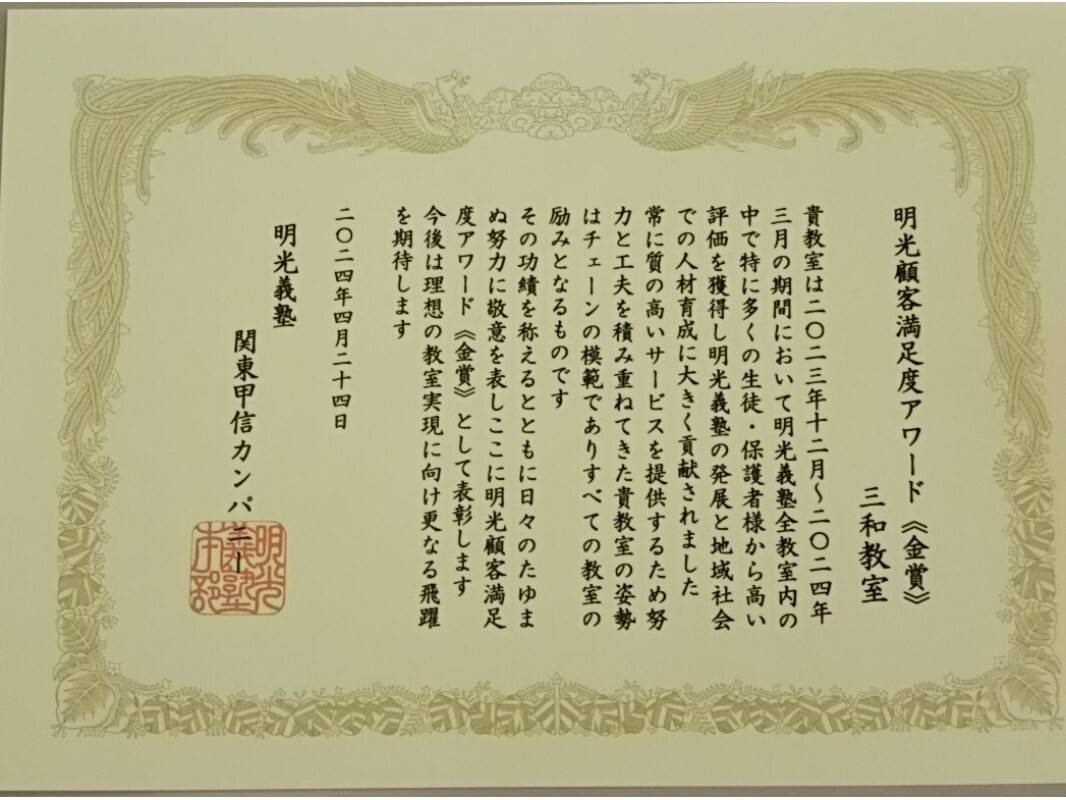 明光顧客満足度アワード《金賞》
三和教室
貴教室は二〇二三年十二月～二〇二四年
三月の期間において明光義塾全教室内の
中で特に多くの生徒・保護者様から高い
評価を獲得し明光義塾の発展と地域社会
での人材育成に大きく貢献されました
常に質の高いサービスを提供するため努
力と工夫を積み重ねてきた貴教室の姿勢
はチェーンの模範でありすべての教室の
励みとなるものです
その功績を称えるとともに日々のたゆま
ぬ努力に敬意を表しここに明光顧客満足
度アワード《金賞》として表彰します
今後は理想の教室実現に向け更なる飛躍
を期待します
二〇二四年四月二十四日
明光義塾
関東甲信カンパニー
明光
義塾
本部